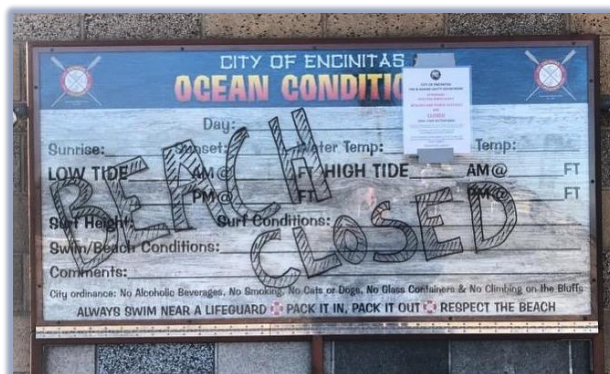 CITY OF ENCINITAS
OCEAN CONDITIO
Day:
Sunrise: Sunset: Water Temp: Temp:
LOW TIDE AM@ FT HIGH TIDE AM@ FT
PM@ FT PM@ FT
Surf Height: Surf Conditions:
Swim/Beach Conditions:
Comments:
BEACH
CLOSED
City ordinance: No Alcoholic Beverages, No Smoking, No Cats or Dogs, No Glass Containers & No Climbing on the Bluffs
ALWAYS SWIM NEAR A LIFEGUARD PACK IT IN, PACK IT OUT RESPECT THE BEACH
CITY OF ENCINITAS
CLOSED